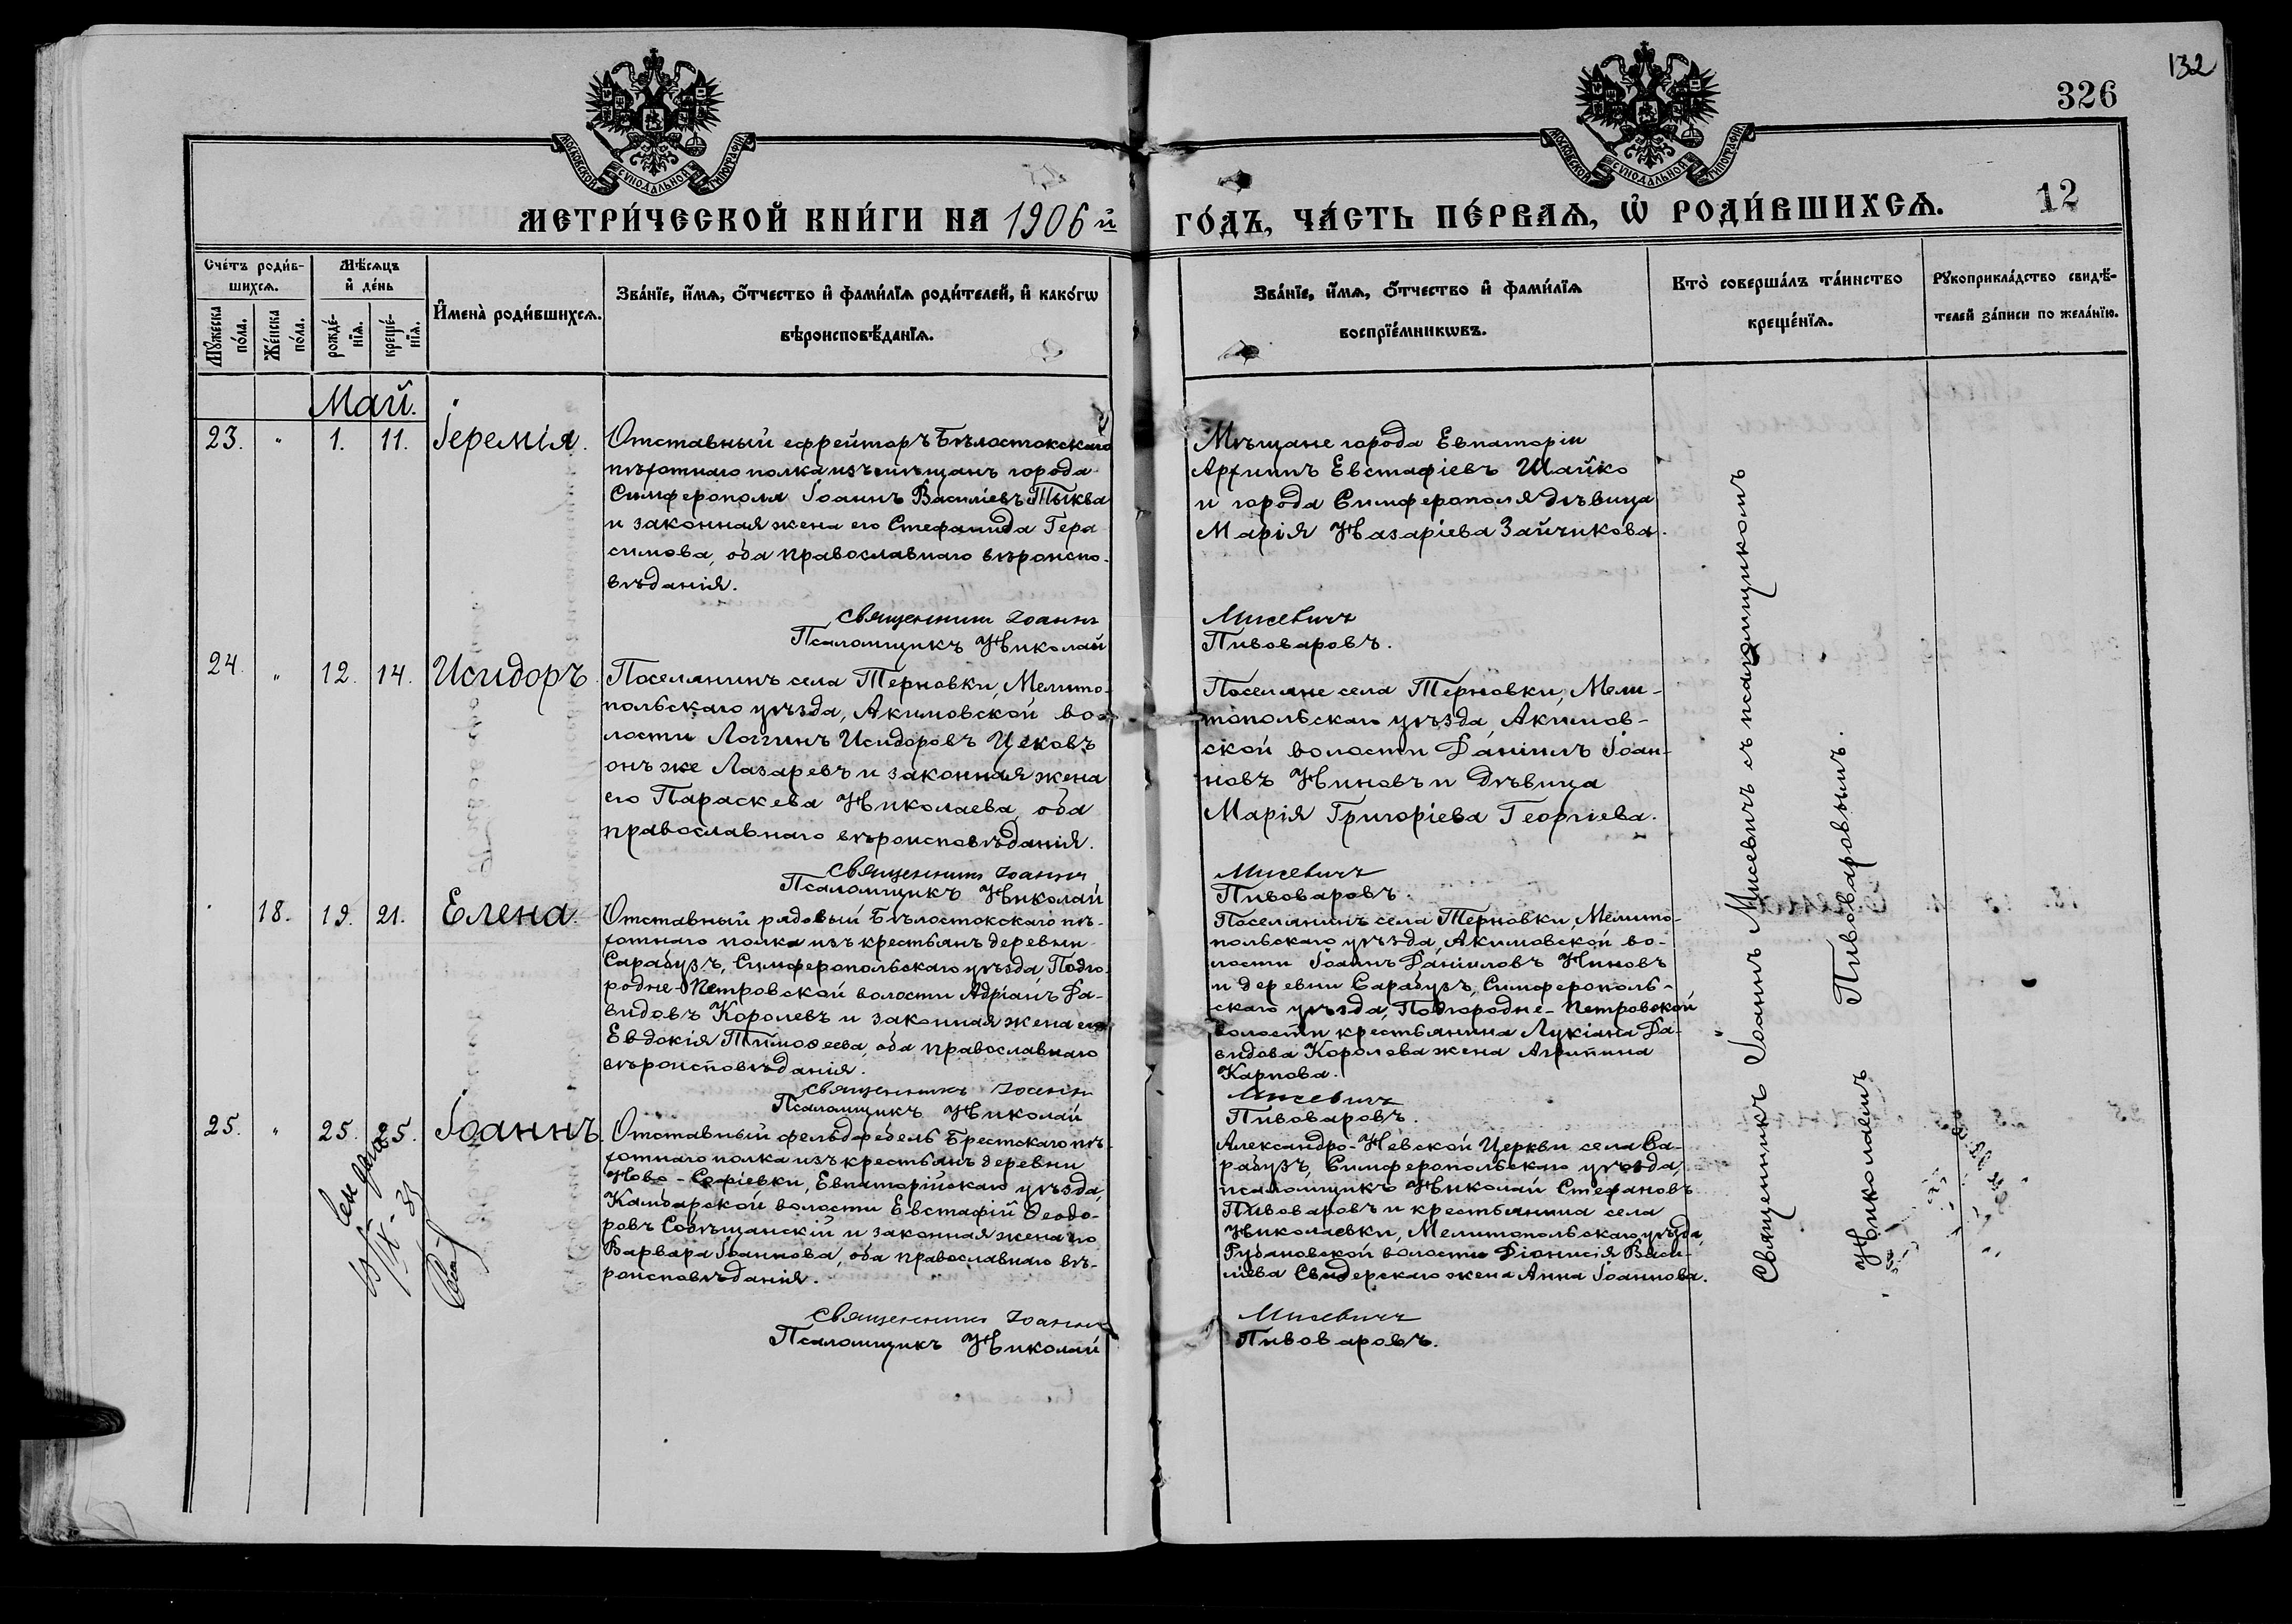 132
326
МОСКОВСКОЙ СѴНОДАЛЬНОЙ ТИПОГРАФІИ
МОСКОВСКОЙ СѴНОДАЛЬНОЙ ТИПОГРАФІИ
МЕТРИ́ЧЕСКОЙ КНИ́ГИ НА 1906 й
ГО́ДЪ, ЧА́СТЬ ПЕ́РВАѦ, Ѿ РОДИ́ВШИХСѦ.
12
Сче́тъ роди́в-
шихсѧ.
Мꙋ́жеска по́ла.
Же́нска по́ла.
Мѣ́сѧцъ
и҆ де́нь
рожде́-
нїѧ.
креще́-
нїѧ.
И҆мена̀ роди́вшихсѧ.
Зва́нїе, и҆́мѧ, о҆́тчество и҆ фами́лїѧ роди́телей, и҆ како́гѡ
вѣроисповѣ́данїѧ.
Зва́нїе, и҆́мѧ, о҆́тчество и҆ фами́лїѧ
воспрїе́мникѡвъ.
Кто̀ соверша́лъ та́инство
креще́нїѧ.
Рꙋкоприкла́дство свидѣ́-
телей за́писи по жела́нїю.
Май.
23. " 1. 11. Іеремія.
Отставный ефрейторъ Бѣлостокскаго
пѣхотнаго полка изъ мѣщанъ города
Симферополя Іоаннъ Василіевъ Тыква
и законная жена его Стефанида Гера
симова, оба православнаго вѣроиспо-
вѣданія.
Священникъ Іоаннъ
Псаломщикъ Николай
Мѣщане города Евпаторіи
Архипъ Евстафіевъ Шайко
и города Симферополя дѣвица
Марія Назаріева Зайчикова.
Мисевичъ
Пивоваровъ.
24. " 12. 14. Исидоръ.
Поселянинъ села Терновки, Мелито-
польскаго уѣзда, Акимовской во-
лости Логгинъ Исидоровъ Цековъ
онъ же Лазаревъ и законная жена
его Параскева Николаева, оба
православнаго вѣроисповѣданія.
Священникъ Іоаннъ
Псаломщикъ Николай
Поселяне села Терновки, Мели-
топольскаго уѣзда, Акимов-
ской волости Даніилъ Іоан-
новъ Ниновъ и дѣвица
Марія Григоріева Георгіева.
Мисевичъ
Пивоваровъ.
18. 19. 21. Елена.
Отставный рядовый Бѣлостокскаго пѣ-
хотнаго полка изъ крестьянъ деревни
Сарабузъ, Симферопольскаго уѣзда, Подго-
родне-Петровской волости Адріанъ Да-
видовъ Королевъ и законная жена его
Евдокія Тимоѳеева, оба православнаго
вѣроисповѣданія.
Священникъ Іоаннъ
Псаломщикъ Николай
Поселянинъ села Терновки, Мелито-
польскаго уѣзда, Акимовской во-
лости Іоаннъ Даніиловъ Ниновъ
и деревни Сарабузъ, Симферополь-
скаго уѣзда, Подгородне-Петровской
волости крестьянина Лукіана Да-
видова Королева жена Агрипина
Карпова.
Мисевичъ
Пивоваровъ.
25. " 25. 25. Іоаннъ.
Отставный фельдфебель Брестскаго пѣ-
хотнаго полка изъ крестьянъ деревни
Ново-Софіевки, Евпаторійскаго уѣзда,
Камбарской волости Евстафій Ѳеодо-
ровъ Собѣщанскій и законная жена его
Варвара Іоаннова, оба православнаго вѣ-
роисповѣданія.
Священникъ Іоаннъ
Псаломщикъ Николай
Александро-Невской Церкви села Са-
рабузъ, Симферопольскаго уѣзда,
псаломщикъ Николай Стефановъ
Пивоваровъ и крестьянина села
Николаевки, Мелитопольскаго уѣзда,
Рубановской волости Діонисія Васи-
ліева Свидерскаго жена Анна Іоаннова.
Мисевичъ
Пивоваровъ.
Священникъ Іоаннъ Мисевичъ съ псаломщикомъ
Николаемъ Пивоваровымъ.